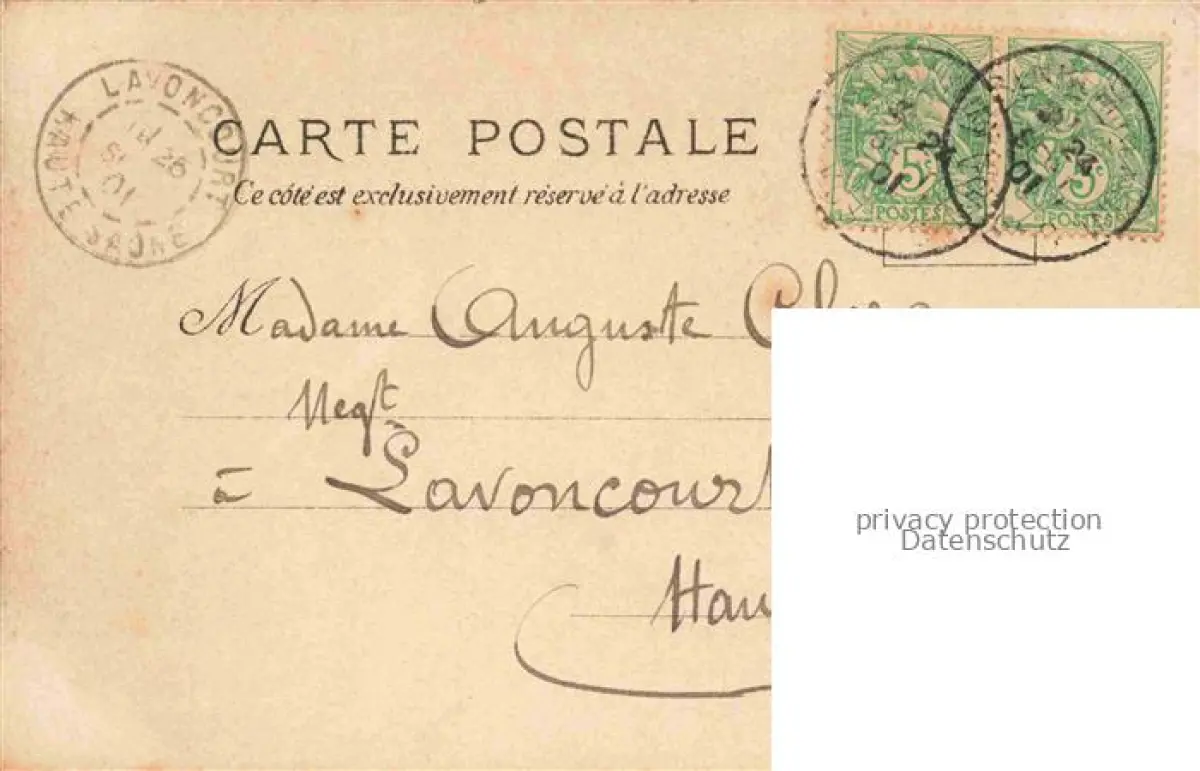 LAVONCOURT
HAUTE SAONE
26
01
CARTE POSTALE
Ce côté est exclusivement réservé à l'adresse
24
01
5c
POSTES
24
01
5c
POSTES
Madame Auguste
Negt
à Lavoncourt
Hau
privacy protection
Datenschutz